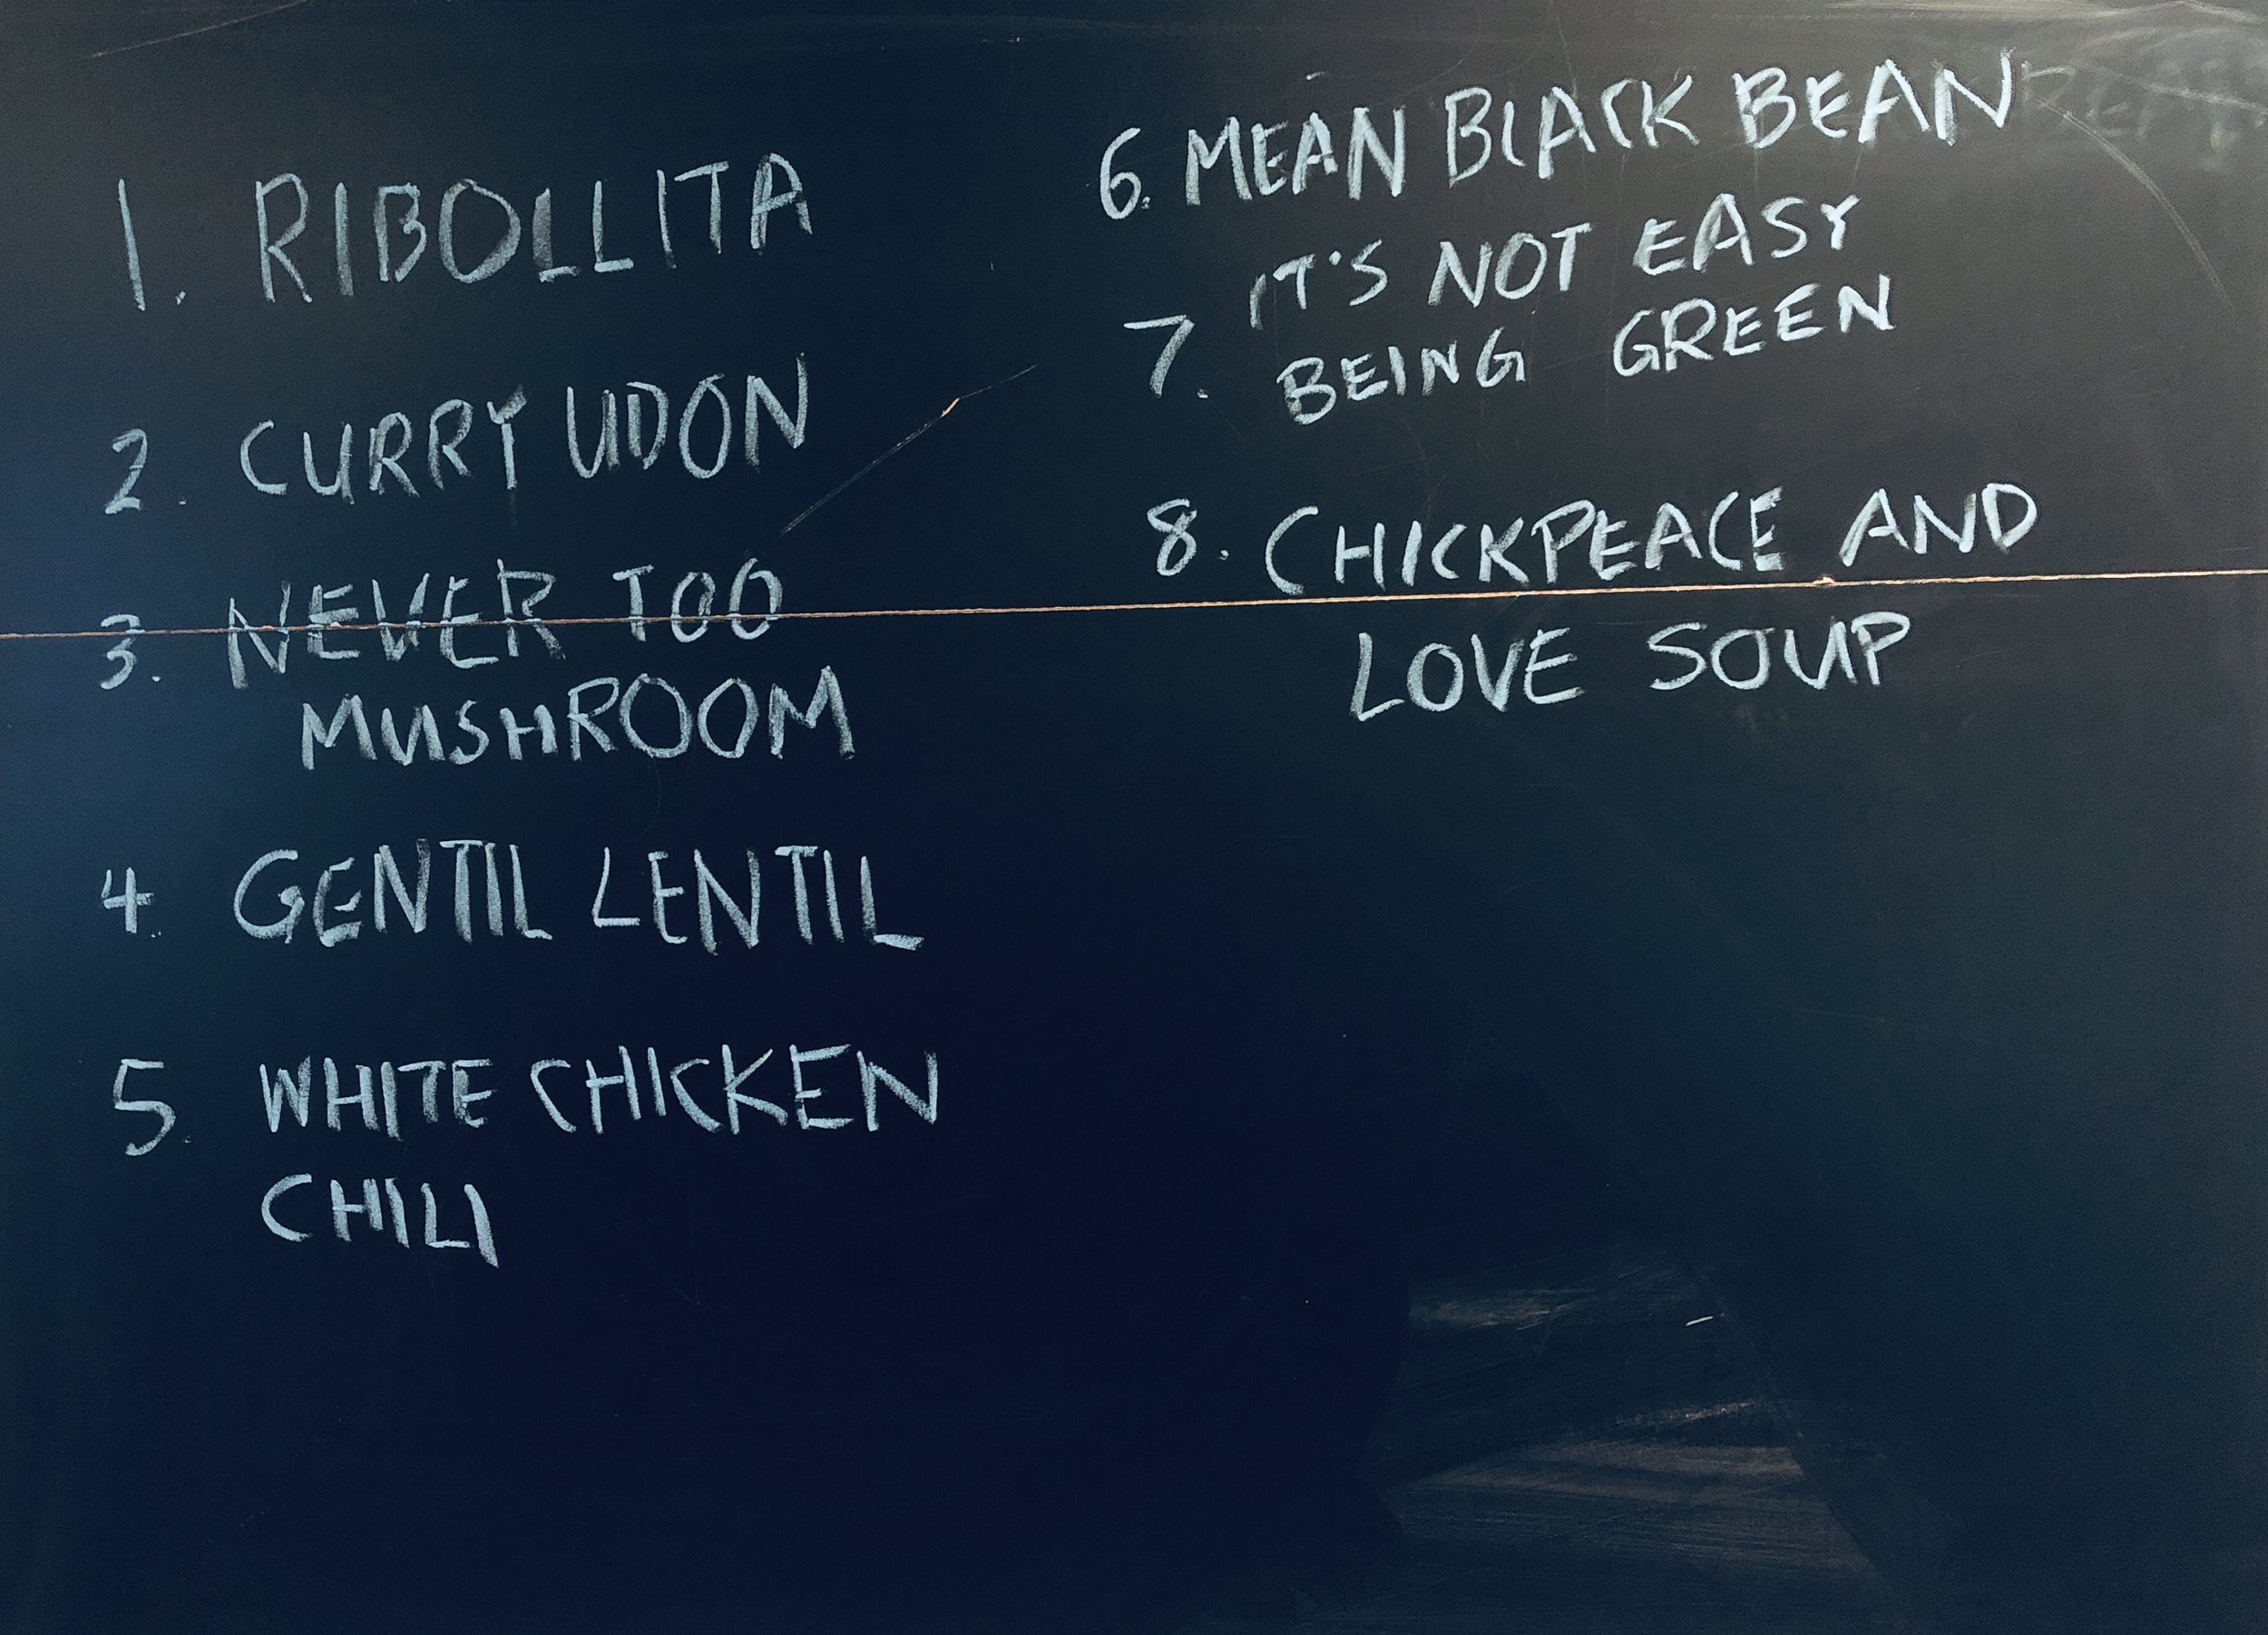 1. RIBOLLITA
2. CURRY UDON
3. NEVER TOO
MUSHROOM
4. GENTIL LENTIL
5. WHITE CHICKEN
CHILI
6. MEAN BLACK BEAN
7. IT'S NOT EASY
BEING GREEN
8. CHICKPEACE AND
LOVE SOUP